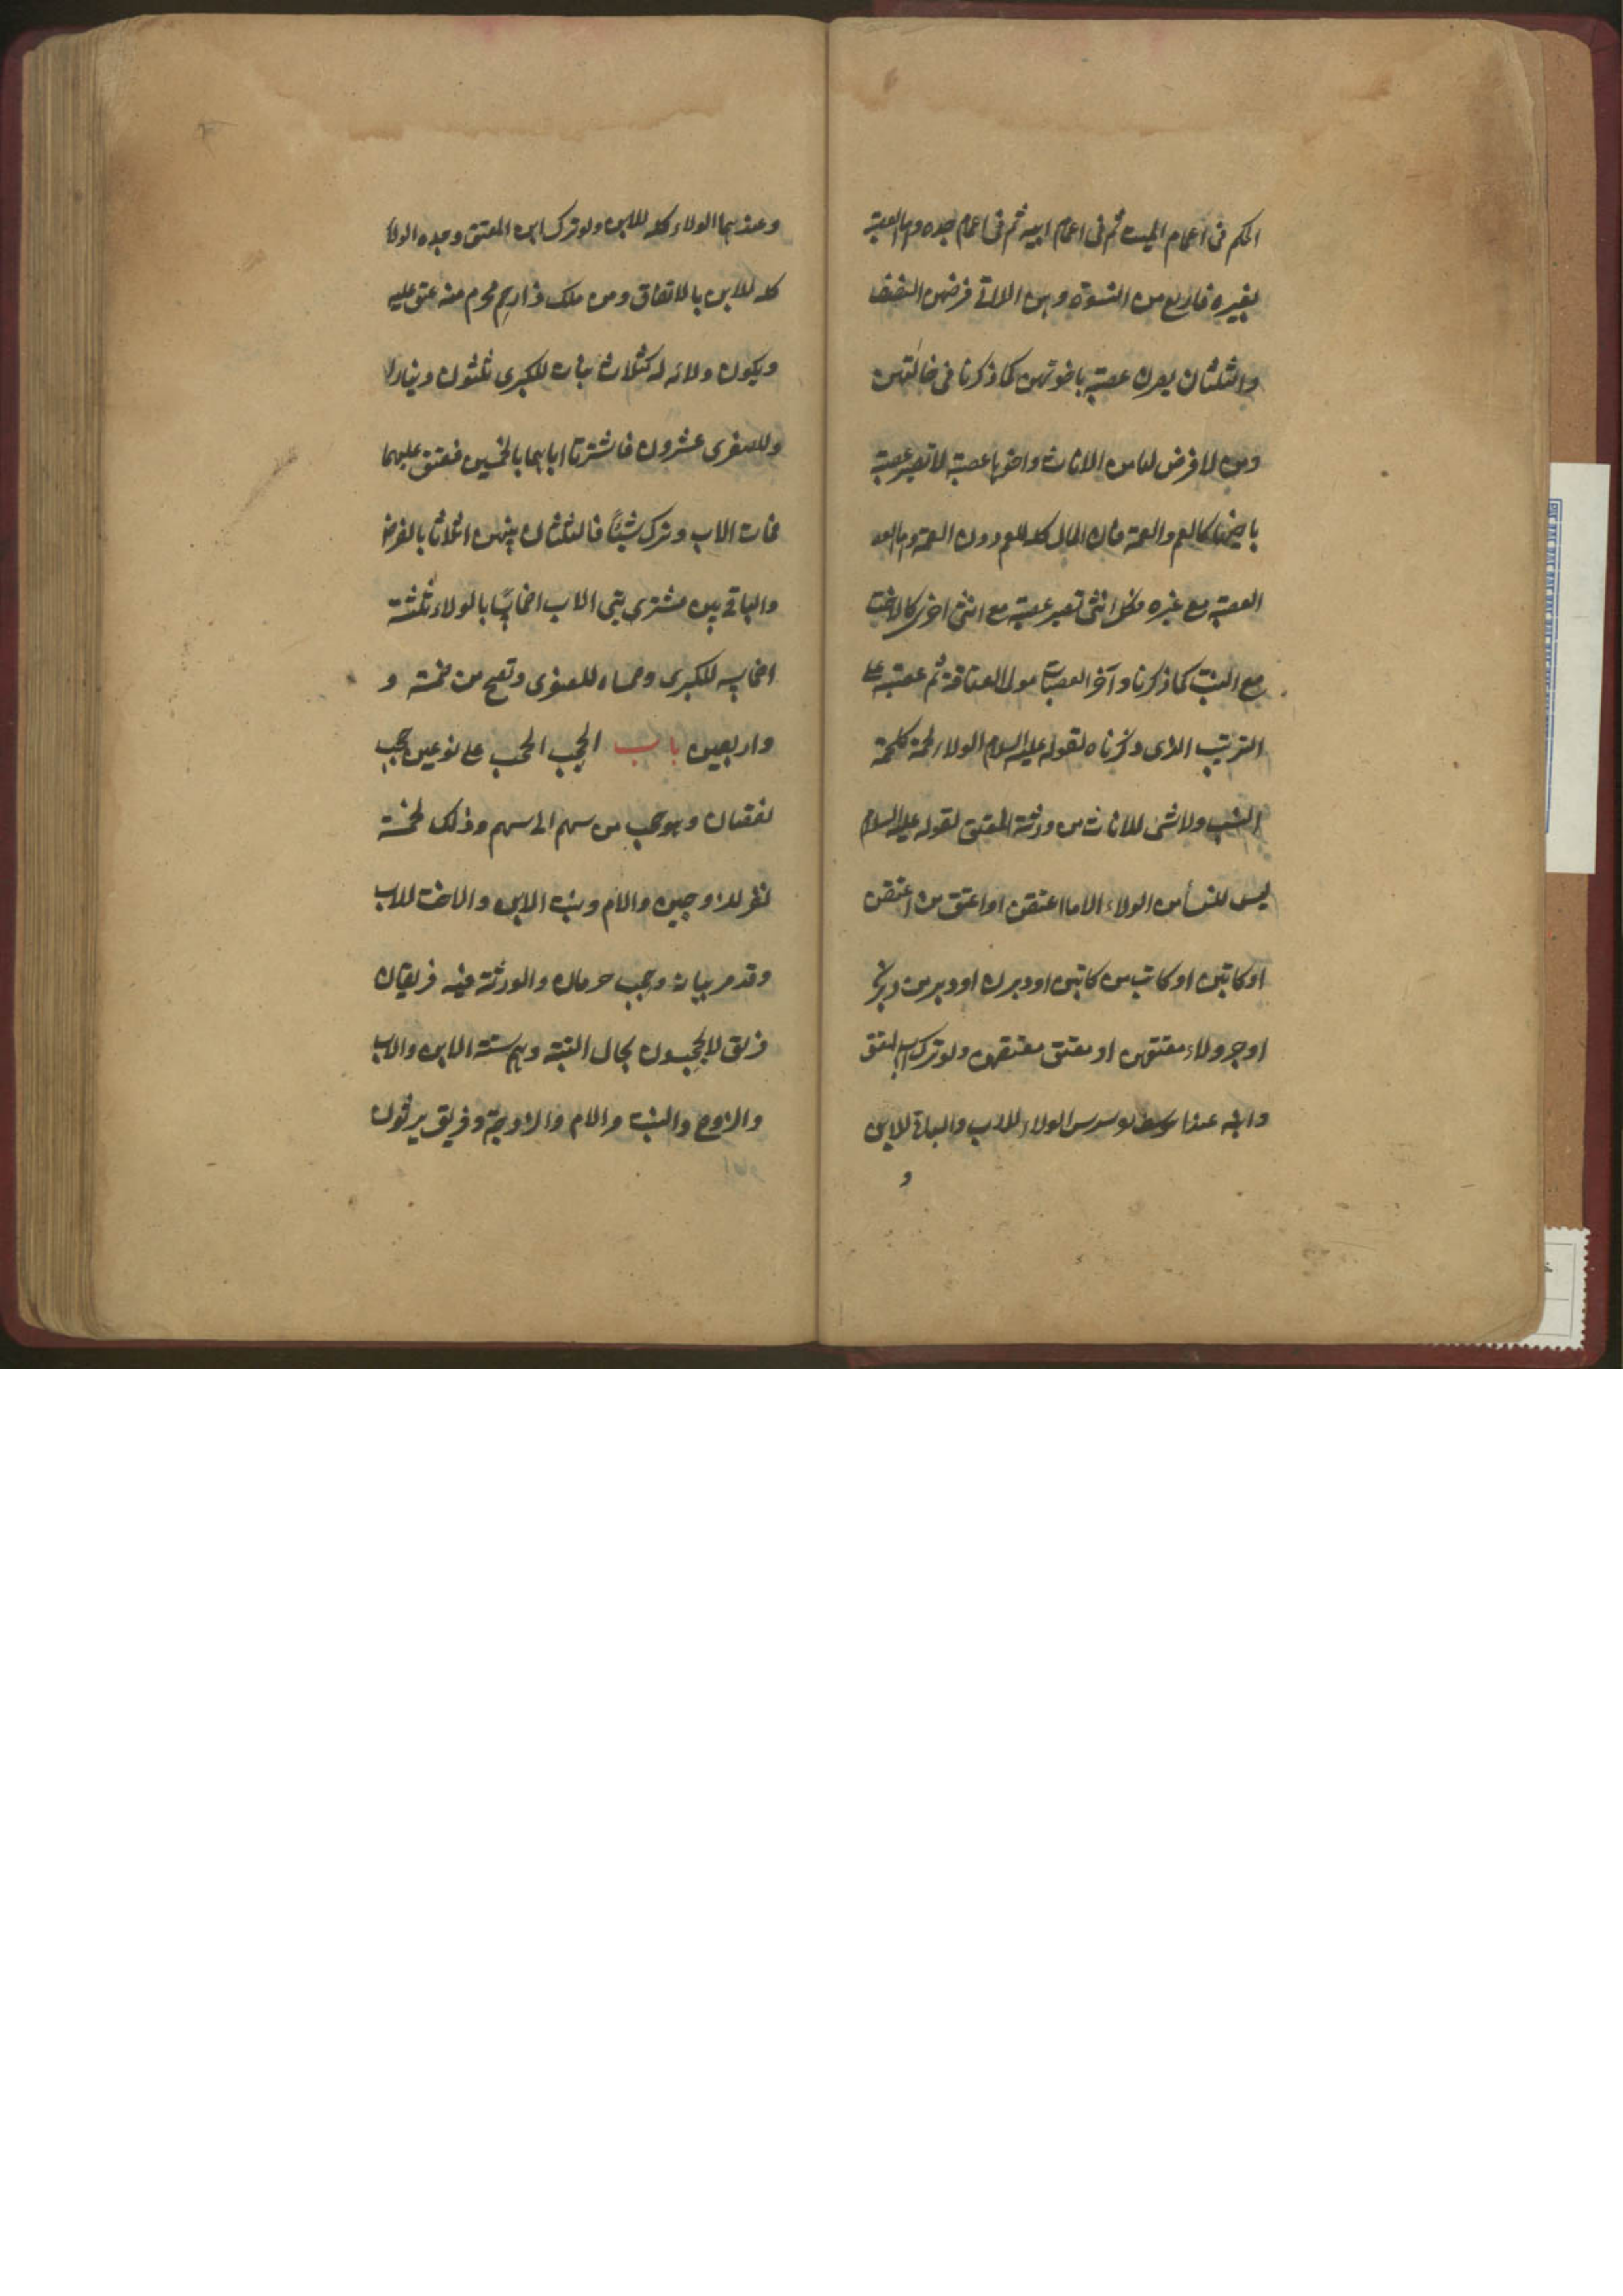 الحكم فى اعمام الميت ثم فى اعمام ابيه ثم فى اعمام جده واما العصبة
بغيره فاربع من النسوة وهن اللاتى فرضهن النصف
والثلثان يصرن عصبة باخوتهن كما ذكرنا فى حالتهن
ومن لا فرض لها من الاناث واخوها عصبة لا تصير عصبة
باخيها كالعم والعمة فان المال كله للعم دون العمة واما
العصبة مع غيره فكل انثى تصير عصبة مع انثى اخرى كالاخت
مع البنت كما ذكرنا وآخر العصبات مولى العتاقة ثم عصبته على
الترتيب الذى ذكرناه لقوله عليه السلام الولاء لحمة كلحمة
النسب ولا شى للاناث من ورثة المعتق لقوله عليه السلام
ليس للنسأ من الولاء الا ما اعتقن او اعتق من اعتقن
او كاتبن او كاتب من كاتبن او دبرن او دبر من دبرن
او جر ولاء معتقهن او معتق معتقهن ولو ترك اب المعتق
وابنه عند ابى يوسف سدس الولاء للاب والباقى للابن
و
وعندهما الولاء كله للابن ولو ترك ابن المعتق وجده الولاء
كله للابن بالاتفاق ومن ملك ذا رحم محرم منه عتق عليه
ويكون ولائه له كثلاث بنات للكبرى ثلثون دينارا
وللصغرى عشرون فاشترتا اباهما بالخمسين فعتق عليهما
فمات الاب وترك شيئًا فالثلثان بينهن اثلاثا بالفرض
والباقى بين مشتريتى الاب اخماسًا بالولاء ثلثة
اخماسه للكبرى وخمساه للصغرى وتصح من خمسة و
واربعين باب الحجب الحجب على نوعين حجب
نقصان وهو حجب من سهم الى سهم وذلك لخمسة
نفر للزوجين والام وبنت الابن والاخت للاب
وقد مر بيانه وحجب حرمان والورثة فيه فريقان
فريق لا يحجبون بحال البتة وهم ستة الابن والاب
والزوج والبنت والام والزوجة وفريق يرثون